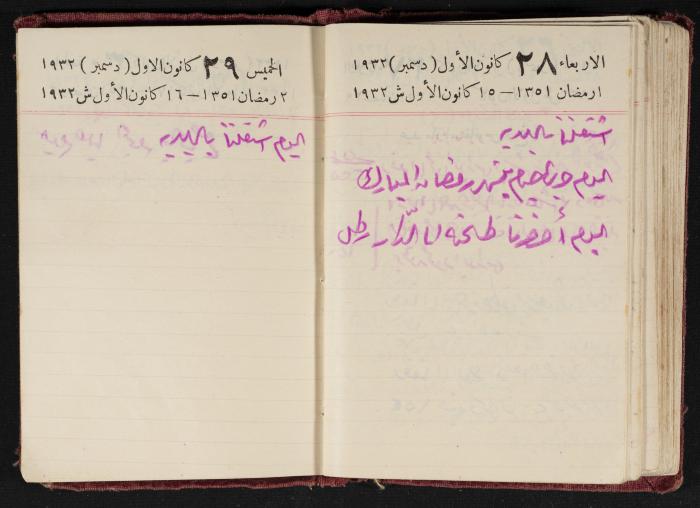 الاربعاء ٢٨ كانون الأول (دسمبر) ١٩٣٢
١ رمضان ١٣٥١ – ١٥ كانون الأول ش ١٩٣٢
اشتغلنا بالبلديه
اليوم صيام شهر رمضان المبارك
اليوم أحضرنا طحنه للدار رطل
الخميس ٢٩ كانون الاول (دسمبر) ١٩٣٢
٢ رمضان ١٣٥١ – ١٦ كانون الأول ش ١٩٣٢
اليوم اشتغلنا بالبلديه